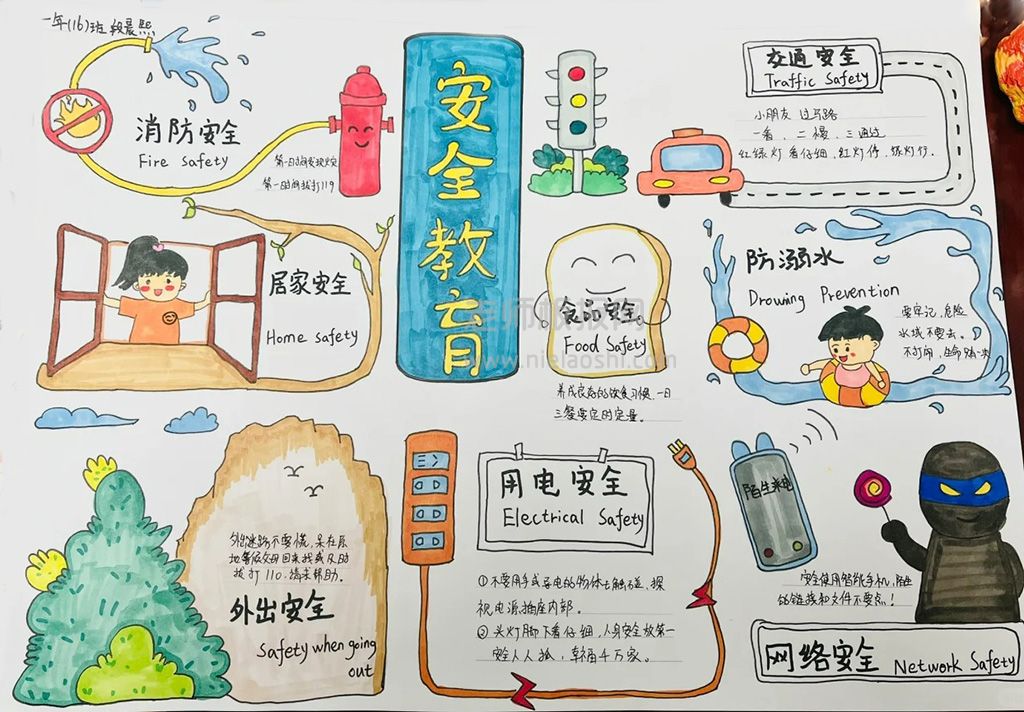 一年(16)班 段晨熙
安全教育
消防安全
Fire safety
第一时间发现火灾
第一时间拨打119
交通安全
Traffic Safety
小朋友 过马路
一看、二慢、三通过
红绿灯看仔细,红灯停,绿灯行.
居家安全
Home safety
食品安全。
Food Safety
养成良好的饮食习惯,一日
三餐要定时定量。
防溺水
Drowing Prevention
要牢记,危险
水域不要去。
不打闹,生命
www.nielaoshi.com
外出迷路不要慌,呆在原
拔打110,请求帮助.
外出安全
Safety when going
out
用电安全
Electrical Safety
①不要用手或导电的物体去触碰、探
视电源插座内部.
安全人人抢,幸福千万家。
陌生来电
安全使用智能手机,陌生
的链接和文件不要点!
网络安全 Network Safety